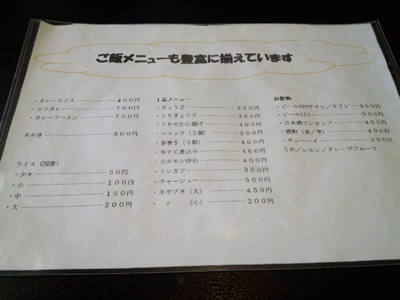 ご飯メニューも豊富に揃えています
・カレーライス 400円
・カツカレー 700円
・カレーラーメン 700円
ネギ丼 300円
ライス（国産）
・少々 50円
・小 100円
・中 150円
・大 200円
1品メニュー
・ぎょうざ 250円
・とりぎょうざ 300円
・とりのから揚げ 400円
・コロッケ（2個） 200円
・春巻き（3個） 400円
・牛すじ煮込み 400円
・ホルモン炒め 400円
・トンカツ 300円
・チャーシュー 300円
・ネギブタ（大） 450円
・ 〃 （小） 200円
お飲物
・ビール(中)アサヒ／キリン 450円
・ビール(小) 350円
・日本酒ワンカップ 400円
・焼酎（麦／芋） 400円
・チューハイ 300円
うめ／レモン／グレープフルーツ